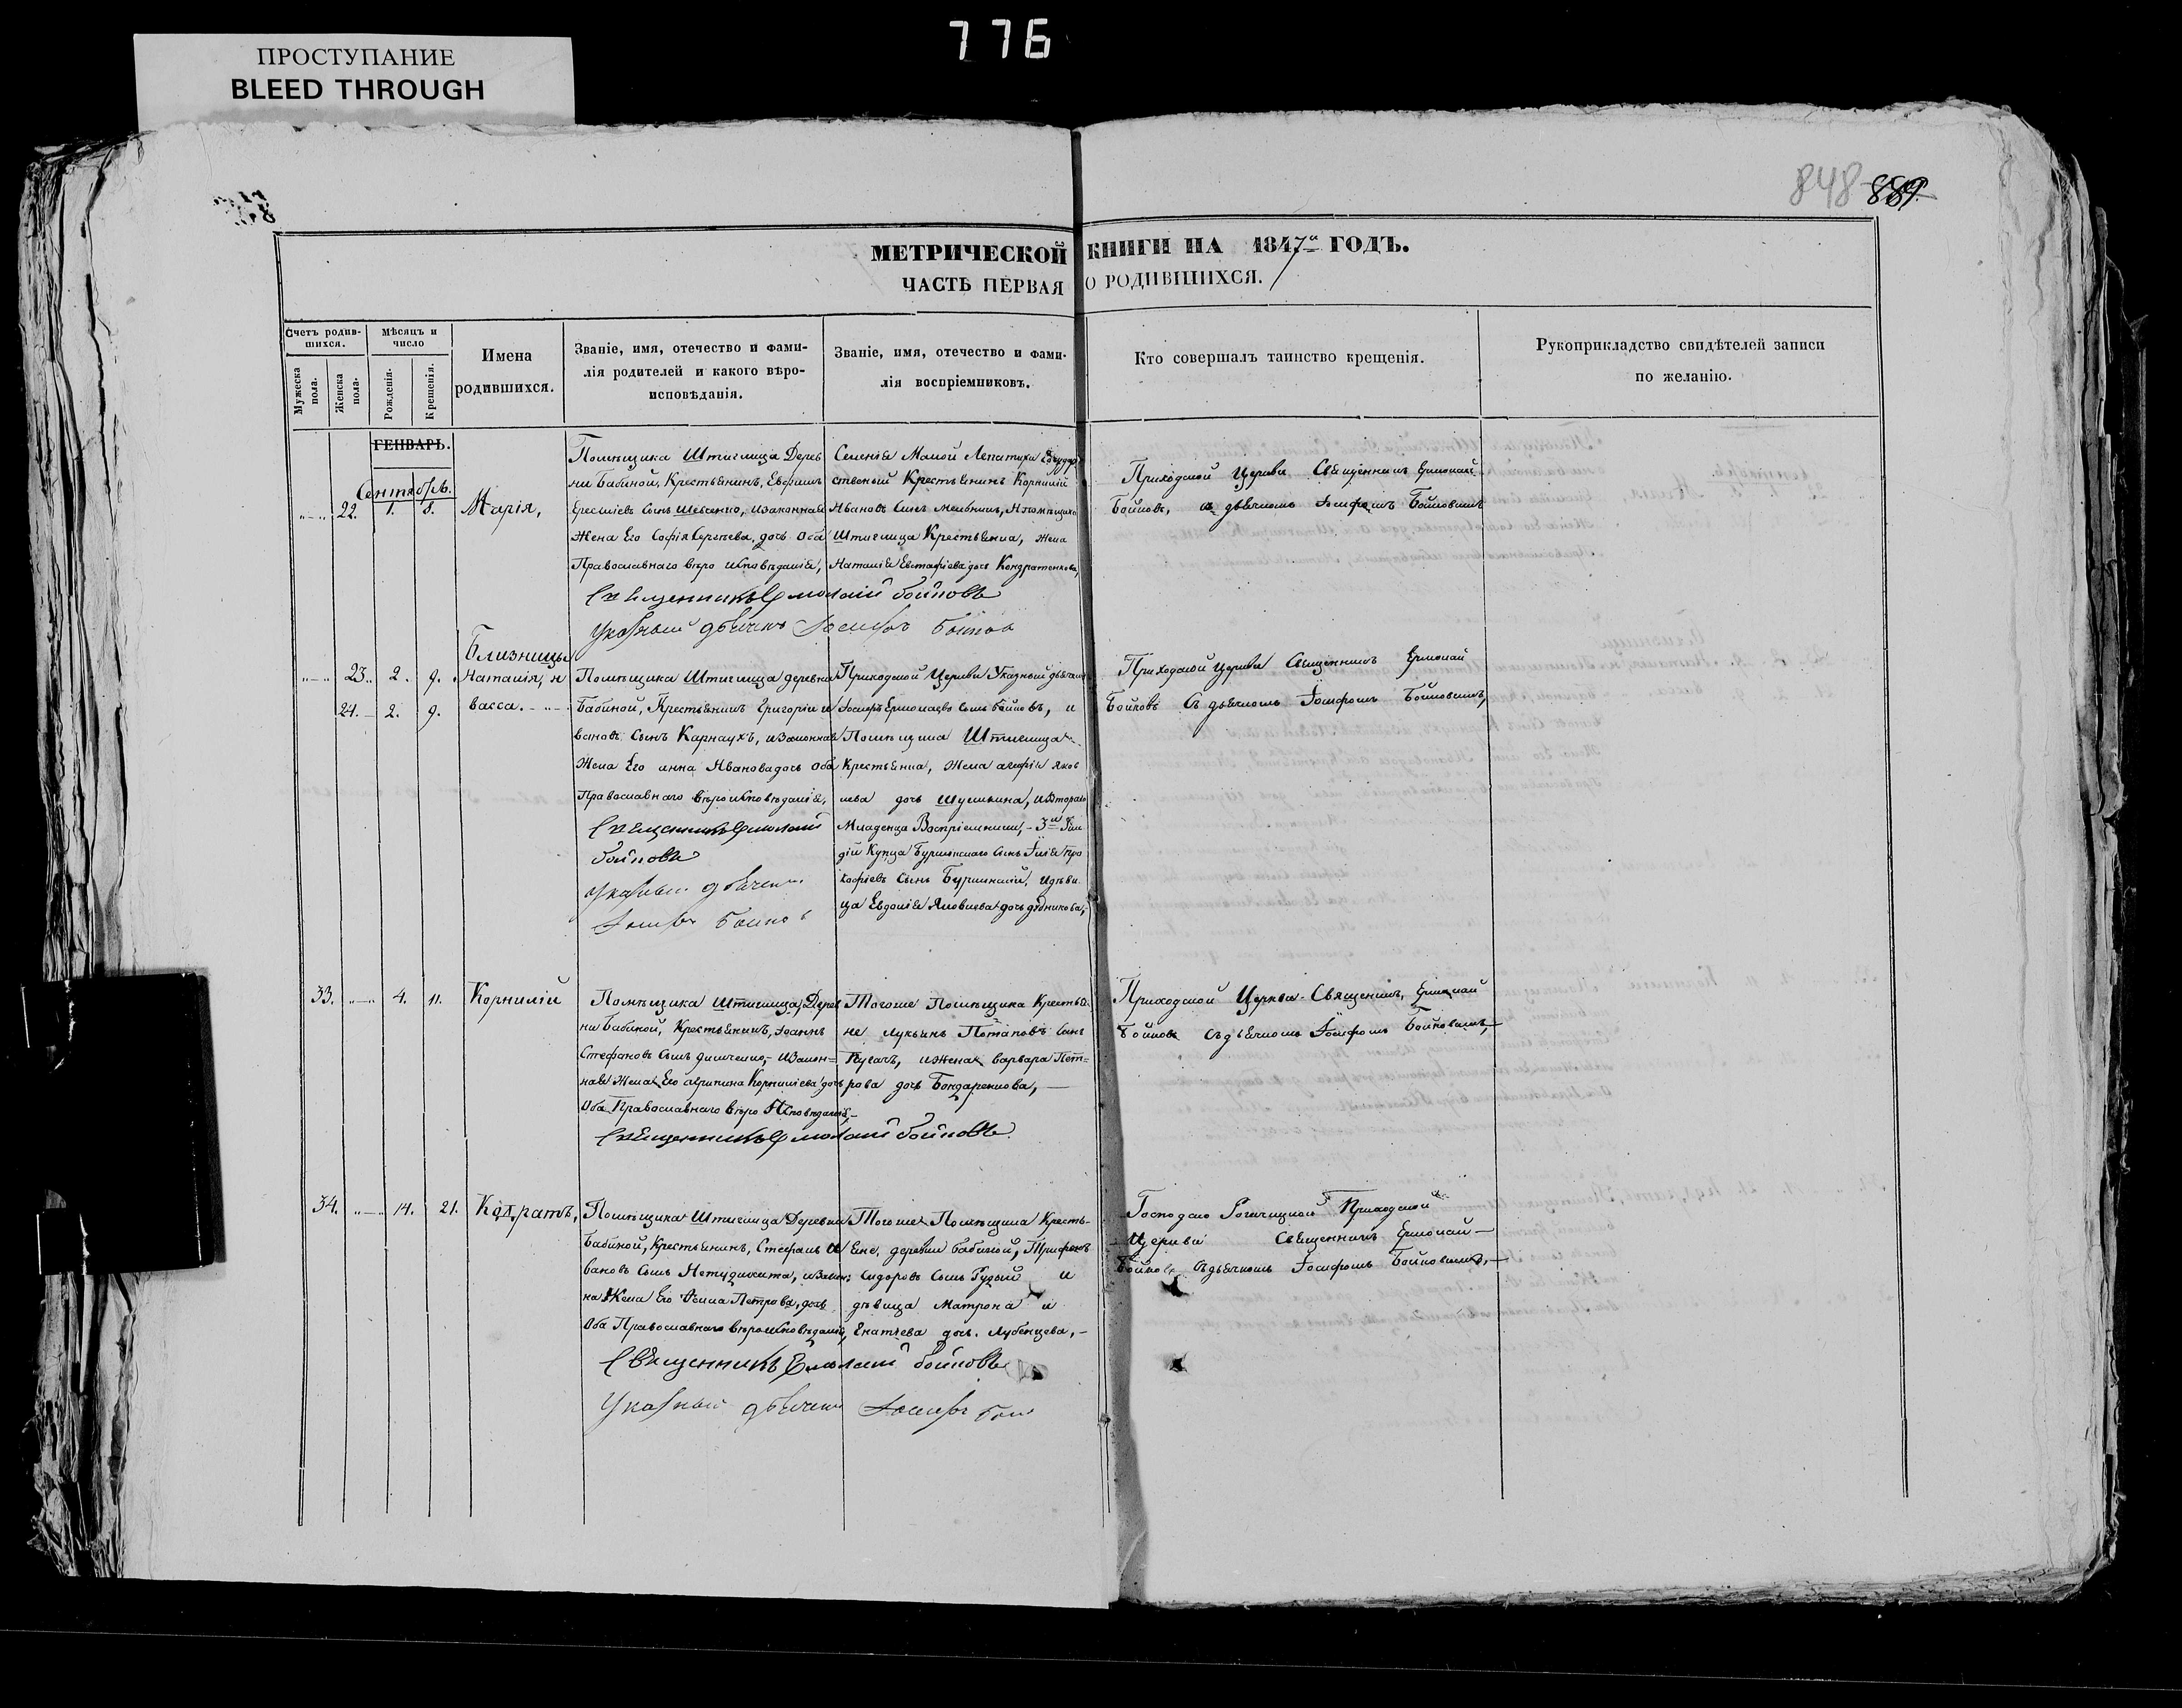 776
ПРОСТУПАНИЕ
BLEED THROUGH
848 889
МЕТРИЧЕСКОЙ КНИГИ НА 1847й ГОДЪ.
ЧАСТЬ ПЕРВАЯ О РОДИВШИХСЯ.
Счетъ родив-
шихся.
Мужеска
пола.
Женска
пола.
Мѣсяцъ и
число
Рожденія.
Крещенія.
Имена
родившихся.
Званіе, имя, отечество и фами-
лія родителей и какого вѣро-
исповѣданія.
Званіе, имя, отечество и фами-
лія воспріемниковъ.
Кто совершалъ таинство крещенія.
Рукоприкладство свидѣтелей записи
по желанію.
ГЕНВАРЬ.
Сентябрь.
22. 1. 8. Марія,
Помѣщика Штиглица Дерев
ни Бабиной, Крестьянинъ, Евфимъ
сынъ Шевченко, изаконная
Жена Его Софія Сергѣева дочь Оба
Православнаго вѣро исповѣданія,
Селенія Малой Лепатихи Государ
ственый Крестьянинъ Корнилій
Ивановъ Сынъ Мельникъ, Ипомѣщика
Штиглица Крестьянка, Жена
Наталія Евстафіева дочь Кондратенкова,
Приходской Церкви Священникъ Ермолай
Бойковъ, дьячкомъ Іосифомъ Бойковымъ
Священникъ Ермолай Бойковъ
Указный дьячекъ Іосифъ Бойков
Близницы
23. 2. 9. Наталія, и
24. 2. 9. васса.
Помѣщика Штиглица деревни
Бабиной, Крестьянинъ Григорій И
вановъ Сынъ Карнаухъ, изаконная
Жена Его анна Иванова дочь Оба
Православнаго вѣроисповѣданія,
Священникъ Ермолай
Бойковъ
Указный дьячекъ
Іосифъ Бойков
Приходской Церкви Указный дьячекъ
Іосифъ Ермолаевъ Сынъ Бойковъ, и
Помѣщика Штиглица
Крестьянка, Жена агафія Яков
лева дочь Шульжина, ивтораго
Младенца Воспріемники, 3й Гил
дій Купца Бурлинскаго Сынъ Илія Про
кофіевъ Сынъ Бурлинскій, идѣви
ца Евдокія Яковлева дочь дудникова,
Приходской Церкви Священникъ Ермолай
Бойковъ Съ дьячкомъ Іосифомъ Бойковымъ,
33. 4. 11. Корнилій
Помѣщика Штиглица, Дерев
ни Бабиной, Крестьянинъ, Іоаннъ
Стефановъ Сынъ, изакон=
ная Жена Его агрипина Корниліева дочь
Оба Православнаго вѣро Исповѣданія,
Тогоже Помѣщика Крестья
не Лукьянъ Потаповъ Сынъ
Рукачъ, ижена варвара Пет=
рова дочь Бондаренкова,
Приходской Церкви Священникъ, Ермолай
Бойковъ Съдьячкомъ Іосифомъ Бойковымъ,
Священникъ Ермолай Бойковъ
34. 14. 21. Кодратъ,
Помѣщика Штиглица Деревни
Бабиной, Крестьянинъ, Стефанъ И
вановъ Сынъ Нетудихата, изакон=
на Жена Его Петрова, дочь
Оба Православнаго вѣроисповѣданія,
Тогоже Помѣщика Кресть-
яне, деревни Бабиной, Трифонъ
Сидоровъ Сынъ Рудый и
дѣвица Матрона и
Гнатіева дочь. Лубенцева,
Господско Рогачицкой Приходской
Церкви Священникъ Ермолай
Бойковъ Съдьячкомъ Іосифомъ Бойковымъ,
Священникъ Ермолай Бойковъ
Указный дьячекъ Іосифъ Бой